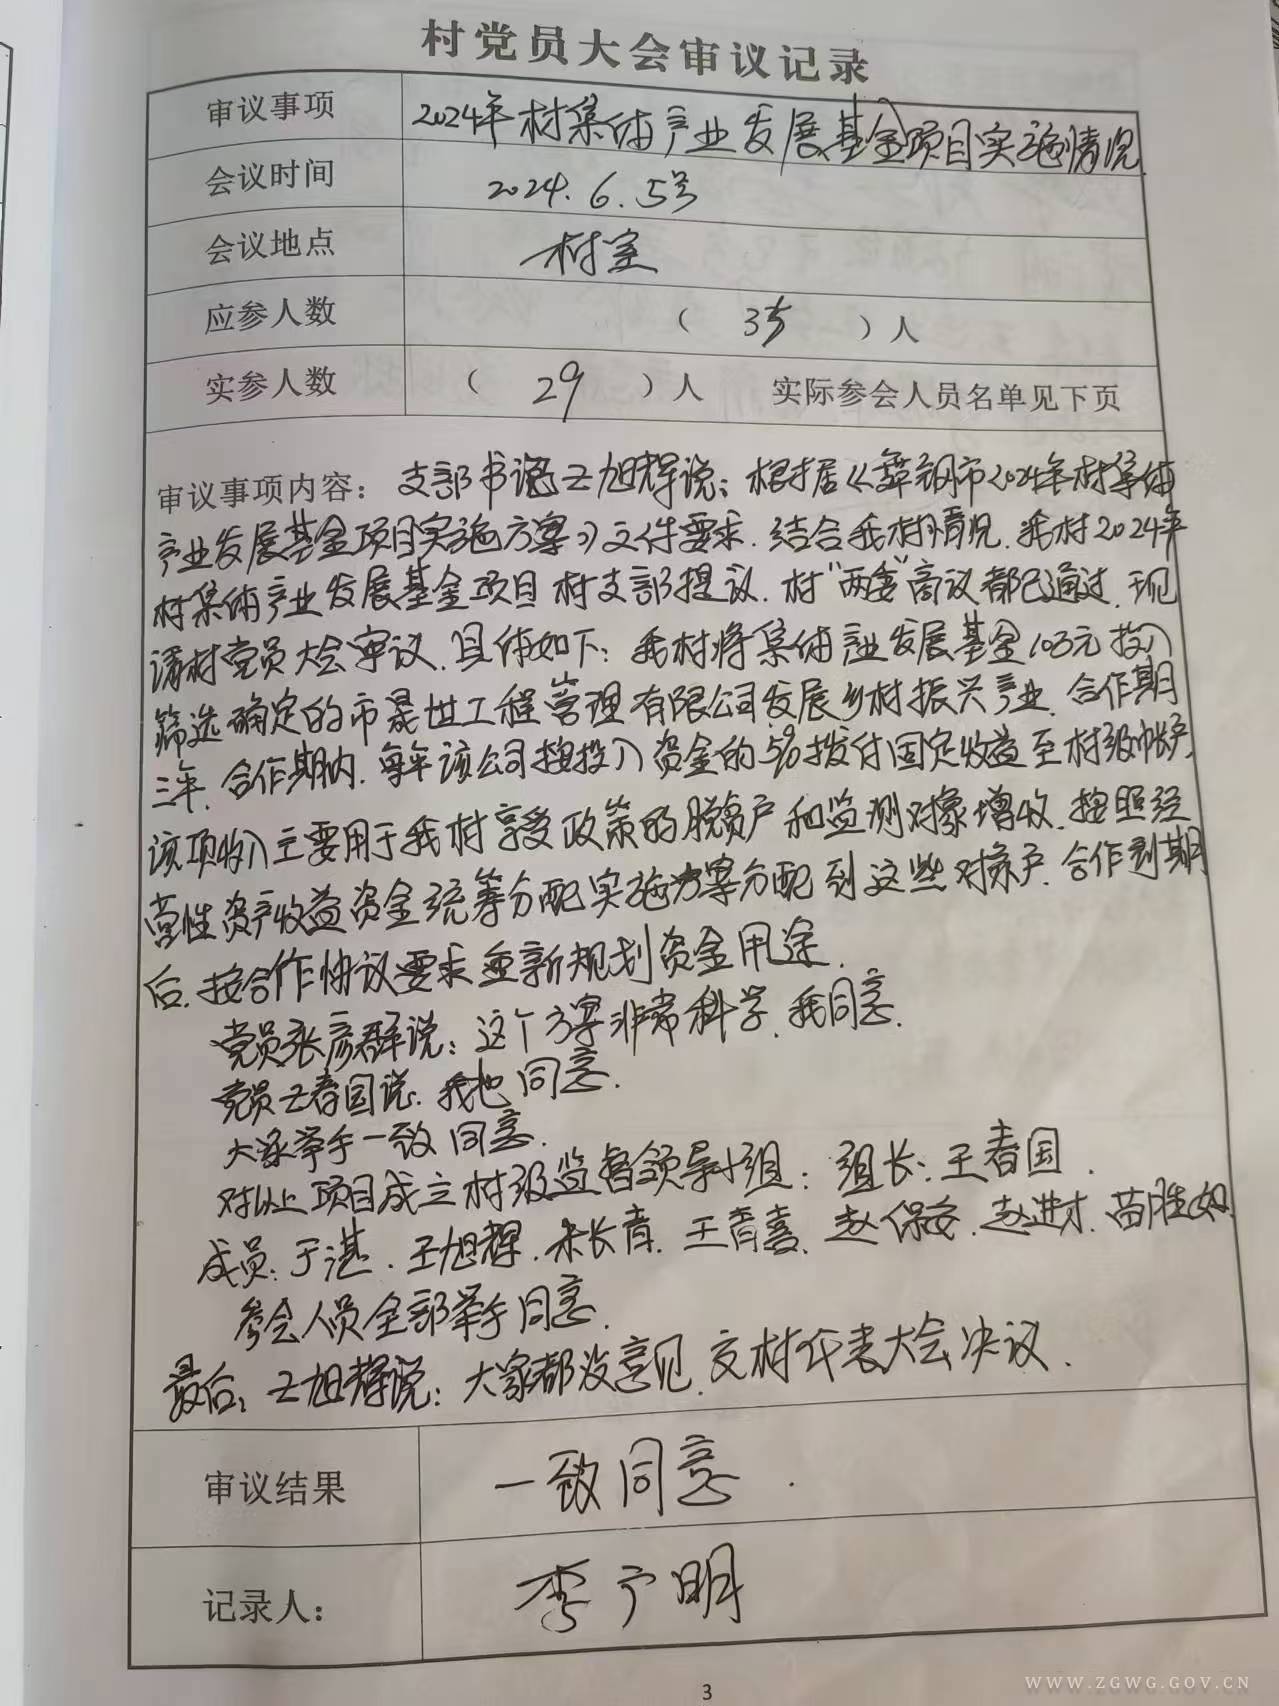 村党员大会审议记录
审议事项 2024年村集体产业发展基金项目实施情况.
会议时间 2024.6.5号
会议地点 村室
应参人数 ( 35 )人
实参人数 ( 29 )人 实际参会人员名单见下页
审议事项内容: 支部书记王旭辉说:根据《舞钢市2024年村集体
产业发展基金项目实施方案》文件要求.结合我村情况.我村2024年
村集体产业发展基金项目村支部提议.村"两委"商议都已通过.现
请村党员大会审议.具体如下:我村将集体产业发展基金10万元投入
筛选确定的市晟世工程管理有限公司发展乡村振兴产业.合作期
三年.合作期内.每年该公司按投入资金的5%拨付固定收益至村级帐户.
该项收入主要用于我村享受政策的脱贫户和监测对象增收.按照经
营性资产收益资金统筹分配实施方案分配到这些对象户.合作到期
后.按合作协议要求重新规划资金用途.
党员张彦群说:这个方案非常科学.我同意.
党员王春国说.我也同意.
大家举手一致同意.
对以上项目成立村级监督领导小组:组长:王春国.
成员:于湛.王旭辉.朱长青.王青喜.赵保安.赵进才.苗胜如.
参会人员全部举手同意.
最后:王旭辉说:大家都没意见.交村代表大会决议.
审议结果 一致同意.
记录人: 李广明
3
WWW.ZGWG.GOV.CN